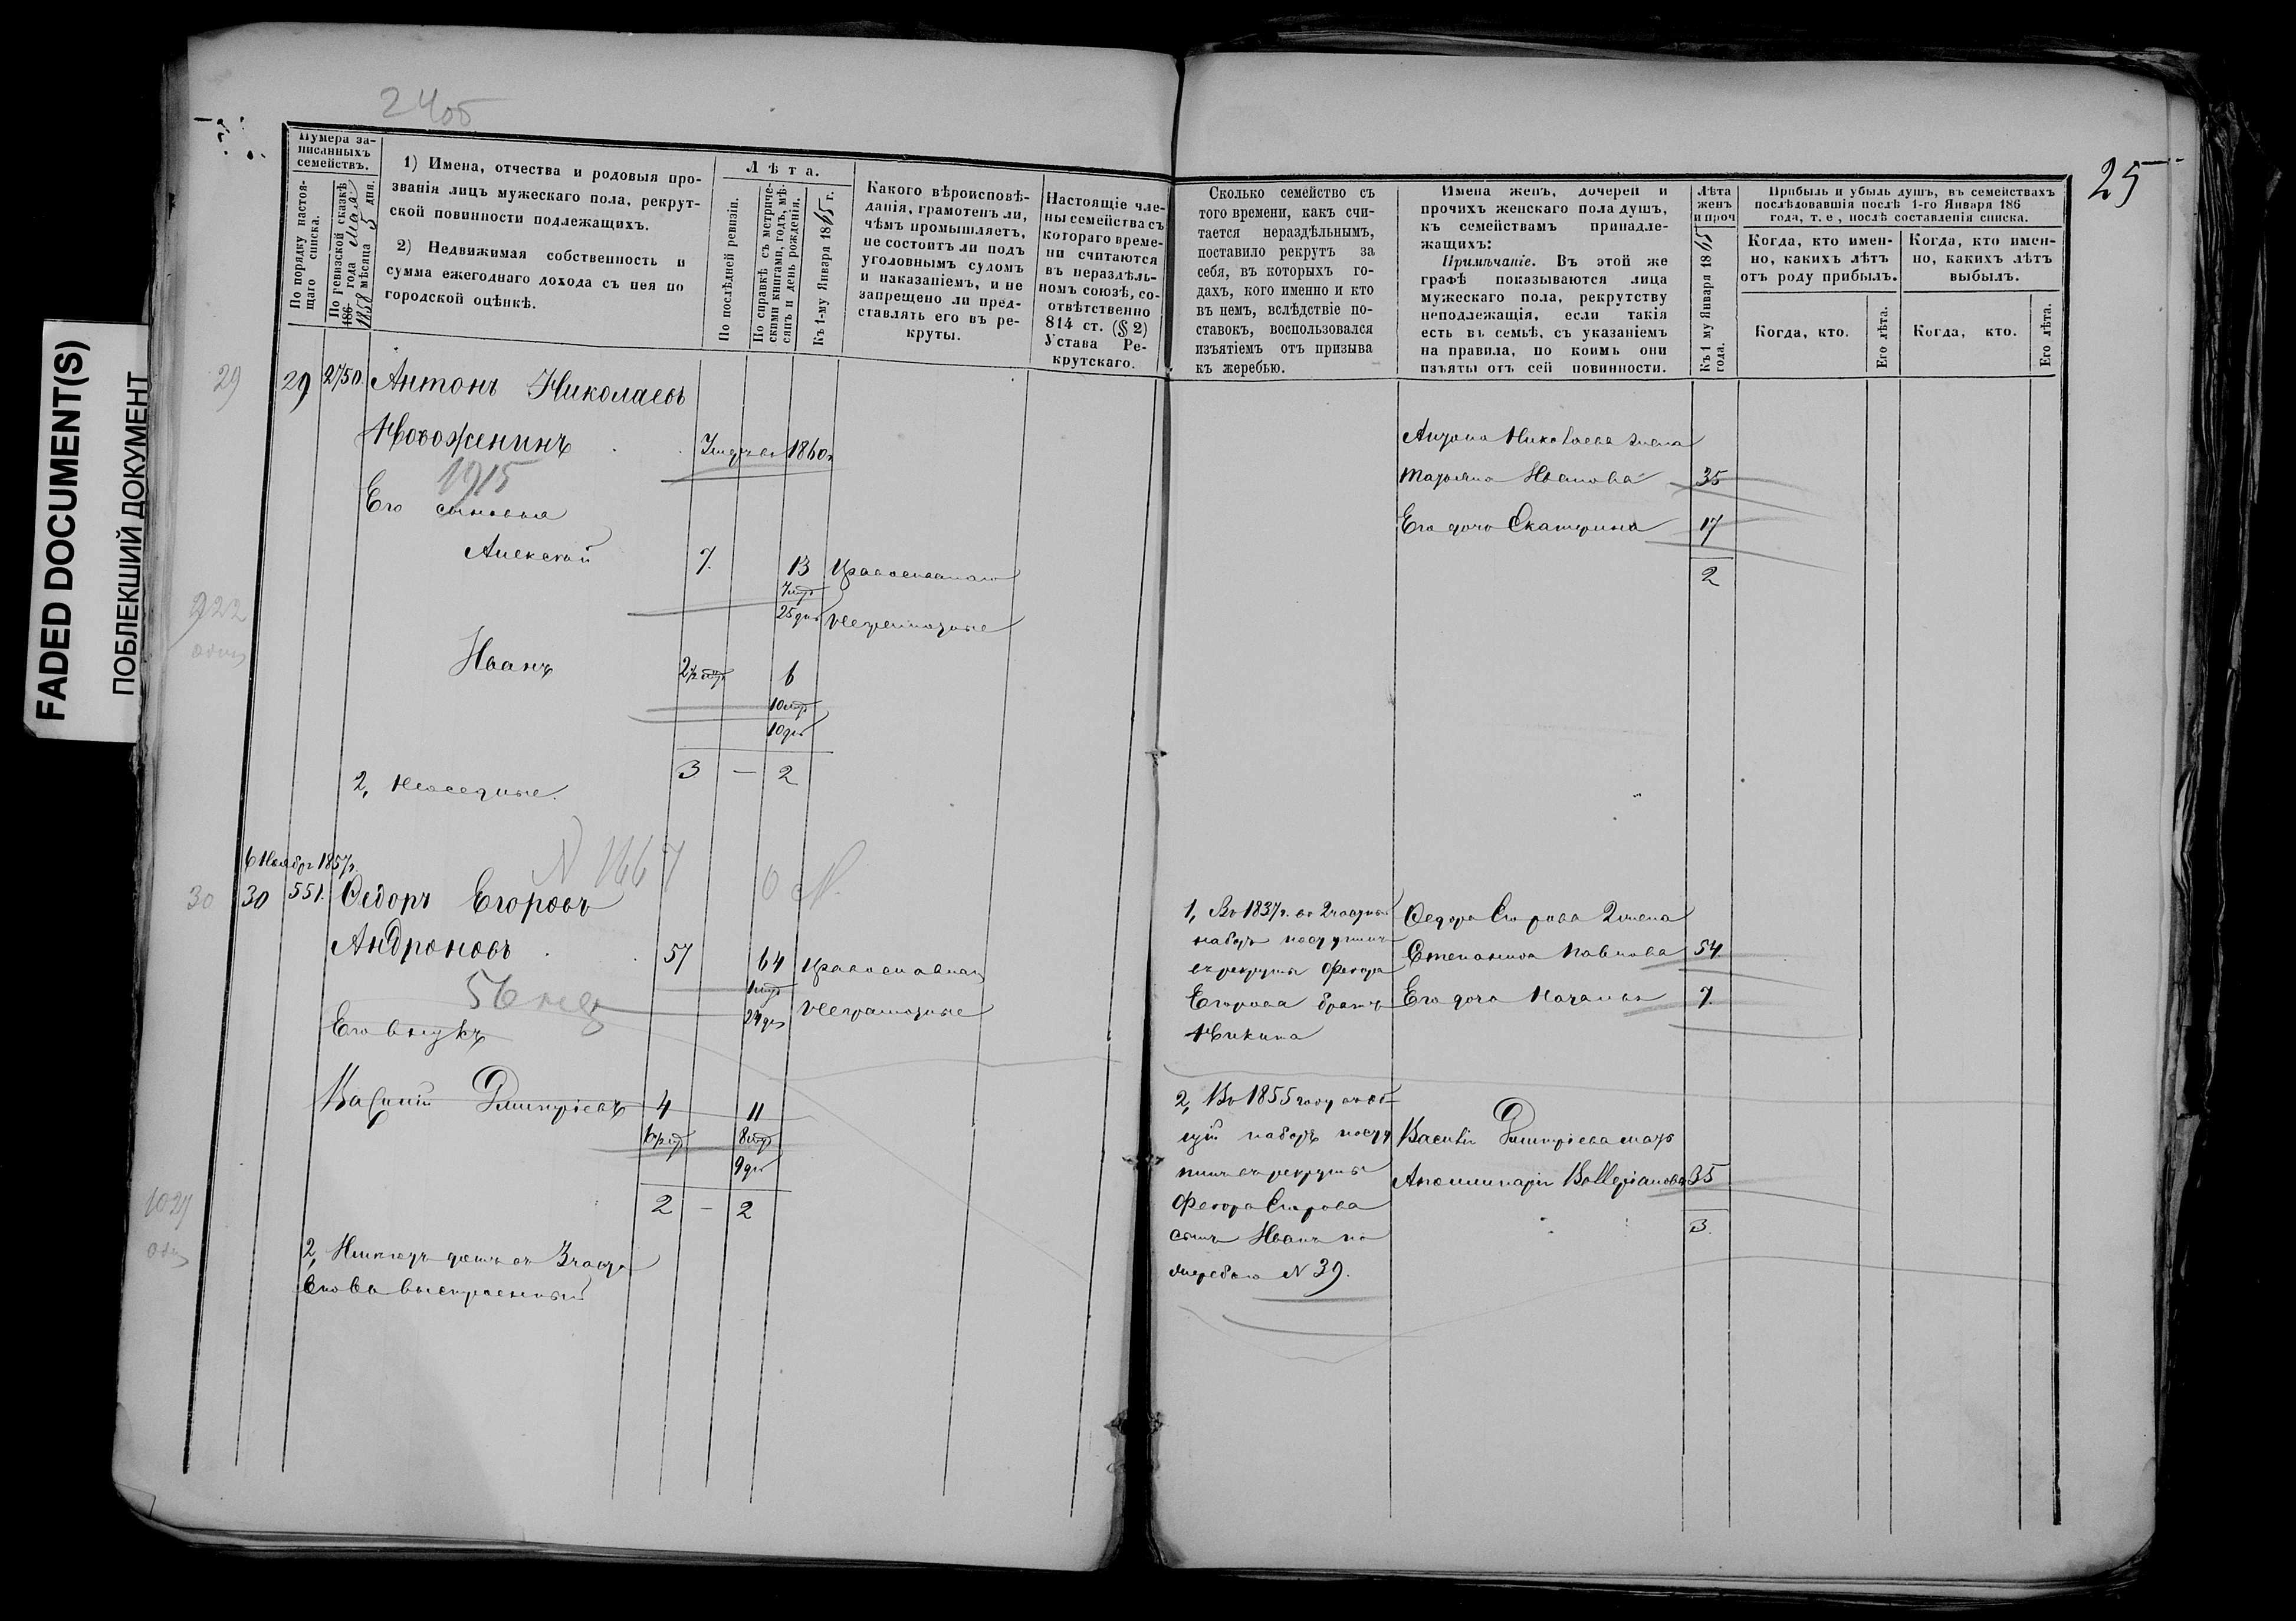 FADED DOCUMENT(S)
ПОБЛЕКШИЙ ДОКУМЕНТ
24об
25
Нумера за-
писанныхъ
семействъ.
По порядку настоя-
щаго списка.
По ревизской сказкѣ
186 года мая
1858 мѣсяца 5 дня.
1) Имена, отчества и родовыя про-
званія лицъ мужескаго пола, рекрут-
ской повинности подлежащихъ.
2) Недвижимая собственность и
сумма ежегоднаго дохода съ нея по
городской оцѣнкѣ.
Лѣта.
По послѣдней ревизіи.
По справкѣ съ метриче-
скими книгами, годъ, мѣ-
сяцъ и день рожденія.
Къ 1-му Января 1865 г.
Какого вѣроисповѣ-
данія, грамотенъ ли,
чѣмъ промышляетъ,
не состоитъ ли подъ
уголовнымъ судомъ
и наказаніемъ, и не
запрещено ли пред-
ставлять его въ ре-
круты.
Настоящіе чле-
ны семейства съ
котораго време-
ни считаются
въ нераздѣль-
номъ союзѣ, со-
отвѣтственно
814 ст. (§ 2)
Устава Ре-
крутскаго.
Сколько семейство съ
того времени, какъ счи-
тается нераздѣльнымъ,
поставило рекрутъ за
себя, въ которыхъ го-
дахъ, кого именно и кто
въ немъ, вслѣдствіе по-
ставокъ, воспользовался
изъятіемъ отъ призыва
къ жеребью.
Имена женъ, дочерей и
прочихъ женскаго пола душъ,
къ семействамъ принадле-
жащихъ:
Примѣчаніе. Въ этой же
графѣ показываются лица
мужескаго пола, рекрутству
неподлежащія, если такія
есть въ семьѣ, съ указаніемъ
на правила, по коимъ они
изъяты отъ сей повинности.
Лѣта
женъ
и проч
Къ 1 му Января 1865
года.
Прибыль и убыль душъ, въ семействахъ
послѣдовавшія послѣ 1-го Января 186
года, т. е, послѣ составленія списка.
Когда, кто имен-
но, какихъ лѣтъ
отъ роду прибылъ.
Когда, кто имен-
но, какихъ лѣтъ
выбылъ.
Когда, кто.
Его лѣта.
Когда, кто.
Его лѣта.
29 29 2750. Антонъ Николаевъ
Новоженинъ 1860
1915
Его сыновья
Алексѣй 7. 13 Православнаго
7 мѣс
25 дн неграмотные
Иванъ 6
10 мѣс
10 дн
3 — 2
2, Неосѣдлые.
Антона Николаева жена
Татьяна Иванова 35
Его дочь Екатерина 17
2
922
6 Ноября 1857г.
N 1667
30 30 551. Ѳедоръ Егоровъ
Андроновъ 57 64 Православнаго
1 мѣс
24 дн неграмотные
Его внукъ
Василій Дмитріевъ 4 11
8 мѣс
9 дн
2 — 2
1027
2, Имѣютъ домъ въ 3 части
вновь выстроенный
1, Въ 1837г. въ 2 частный
наборъ поступилъ
въ рекруты Ѳедора
Егорова братъ
Никита
2, Въ 1855 году въ об-
щій наборъ посту
пилъ въ рекруты
Ѳедора Егорова
сынъ Иванъ по
жеребью N 39.
Ѳедора Егорова 2 жена
Степанида Павлова 54
Его дочь Наталья 7.
Василія Дмитріева мать
Аполлинарія Валлеріанова 35
3.